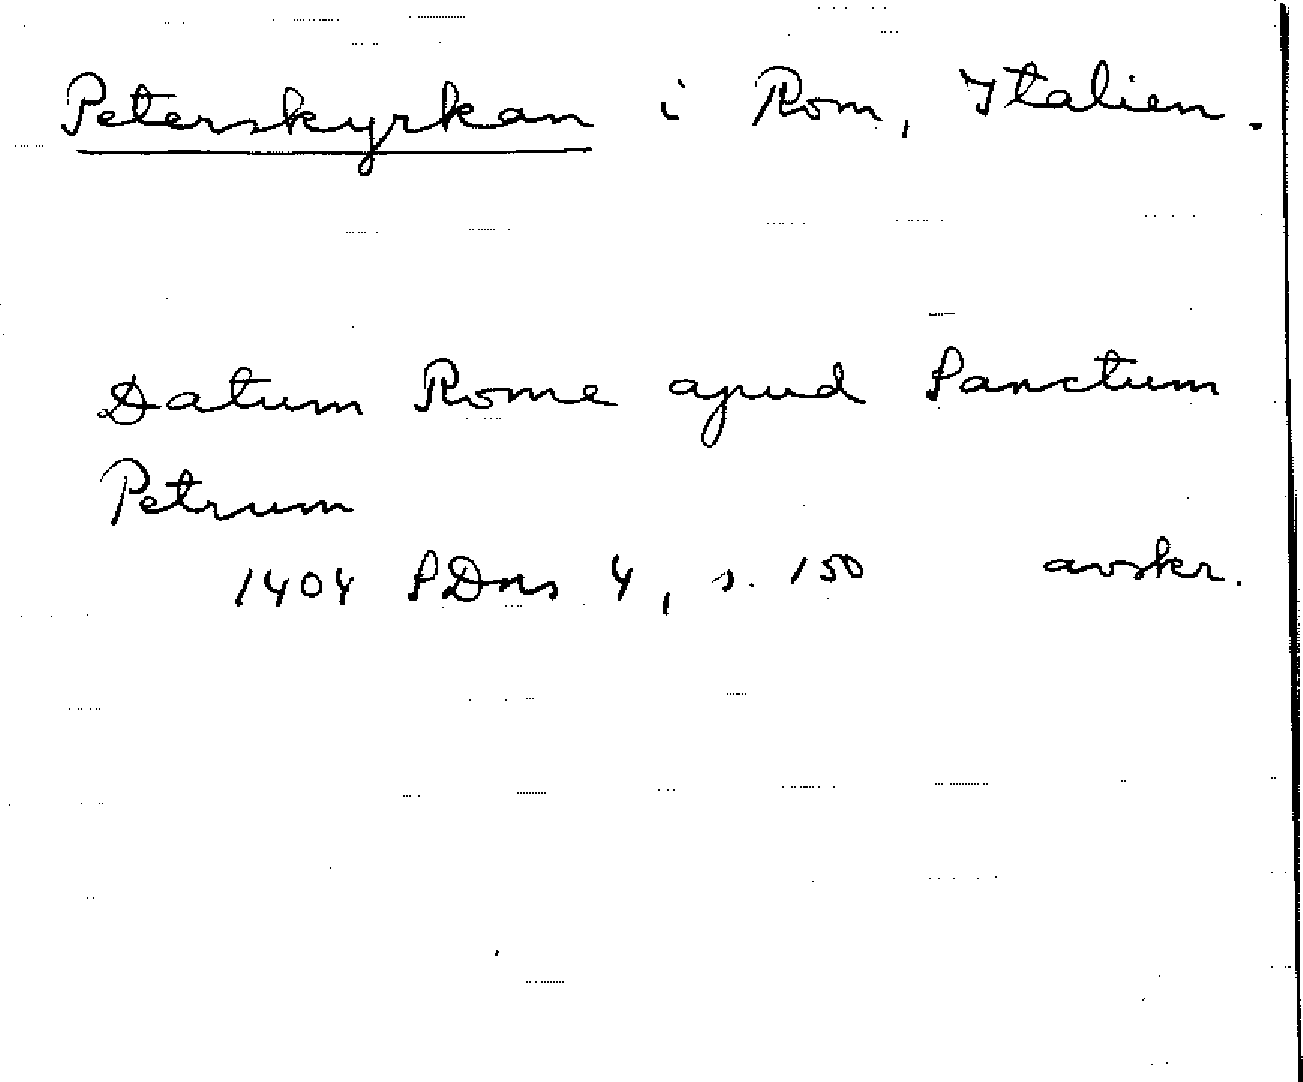 Peterskyrkan i Rom, Italien.
Datum Rome apud Sanctum
Petrum
1404 SDns 4, s. 150 avskr.